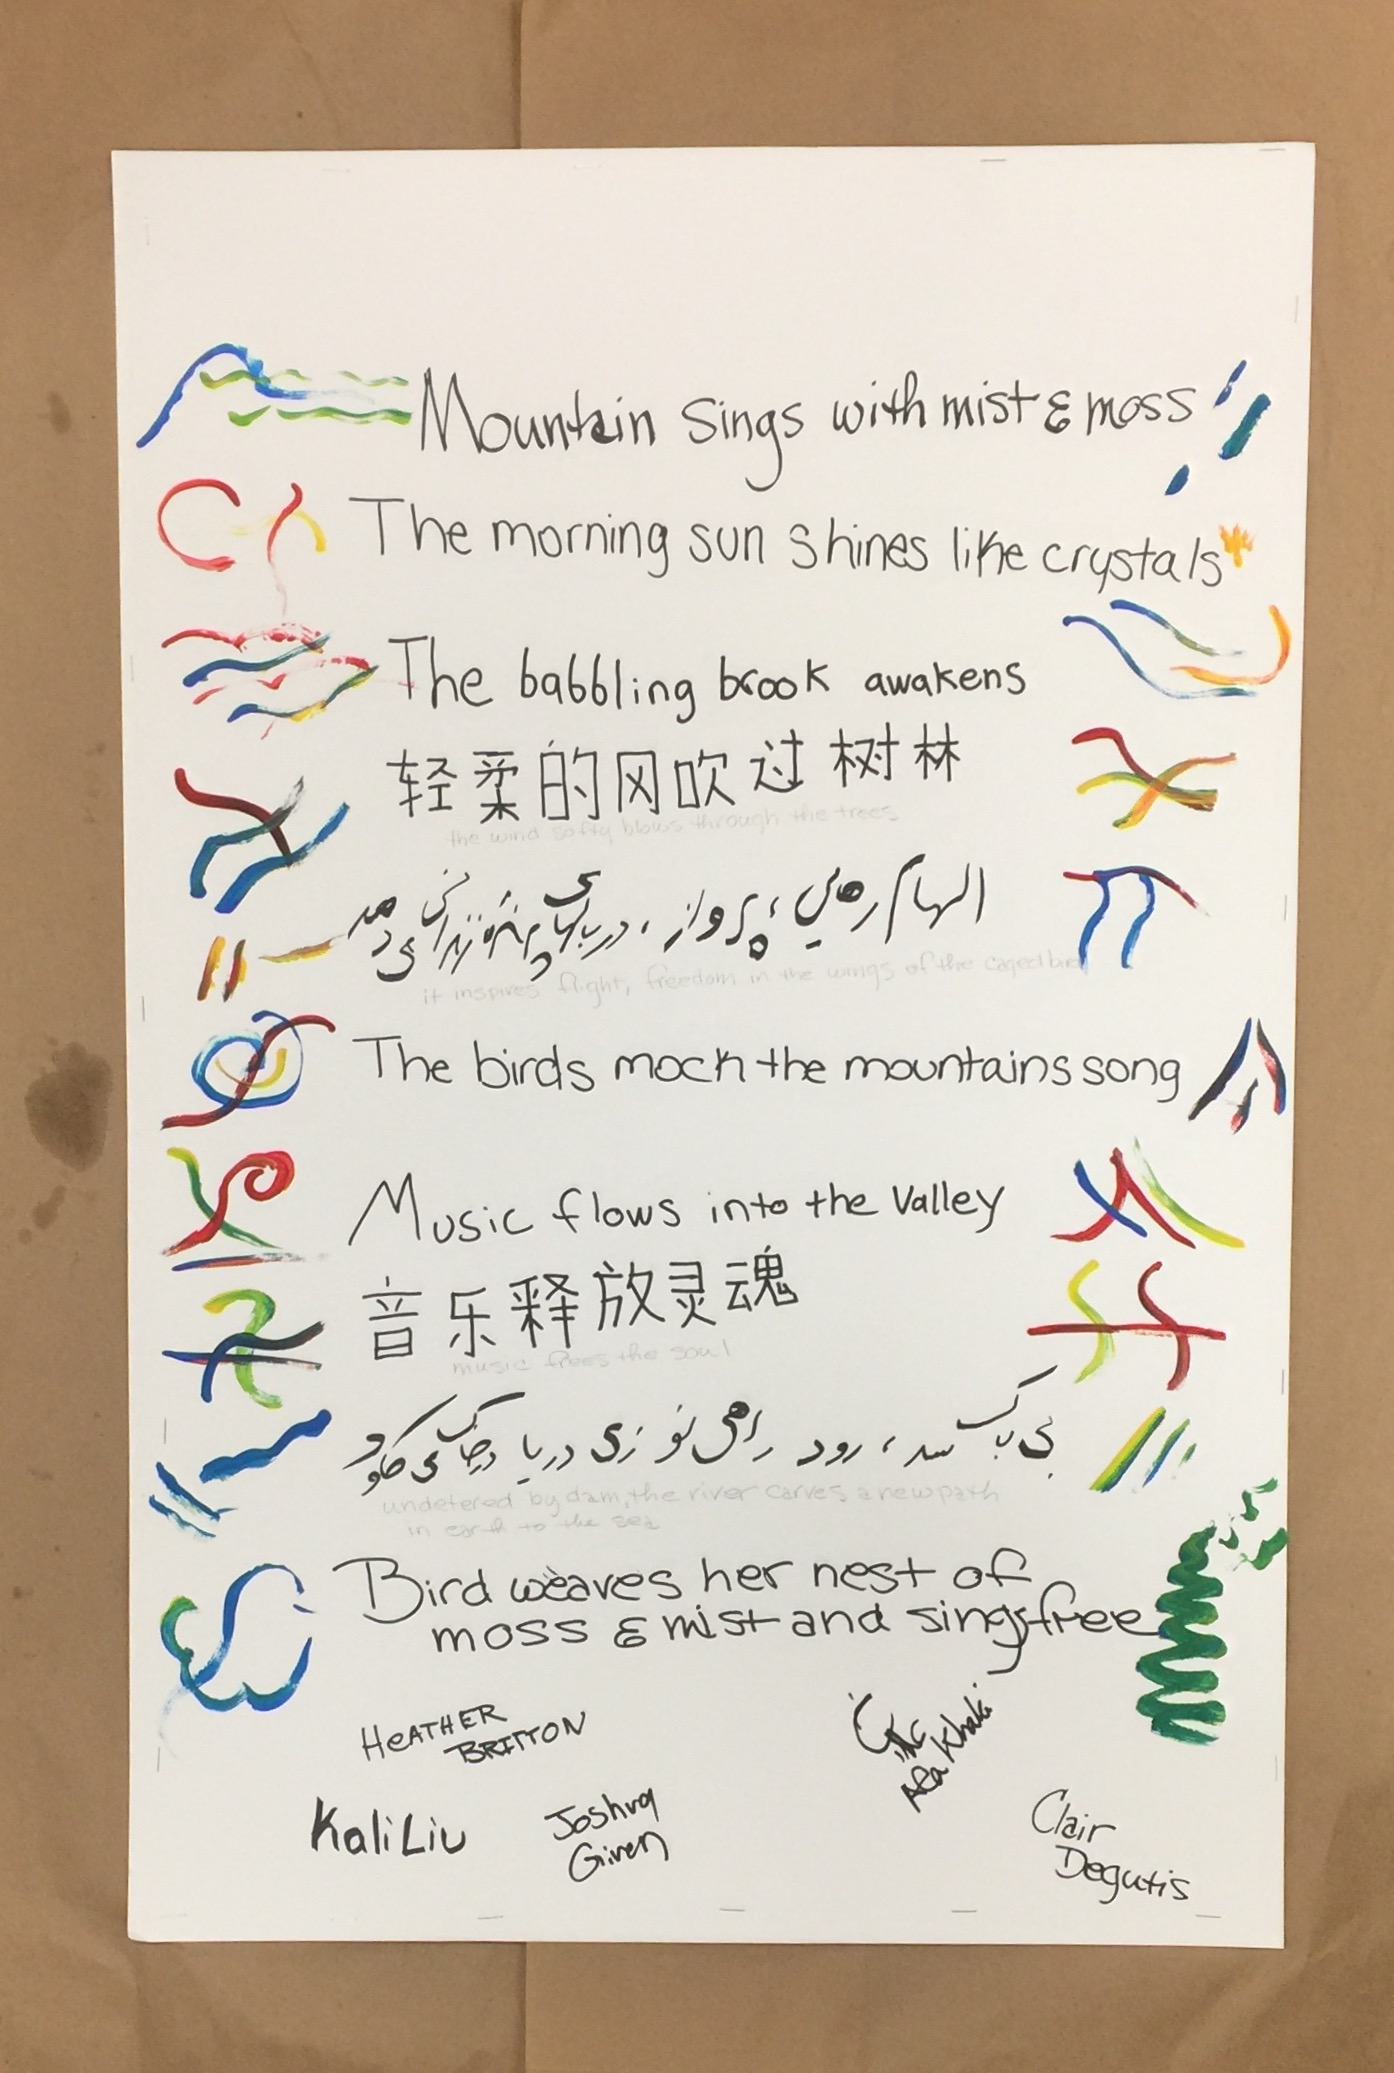 Mountain sings with mist & moss
The morning sun shines like crystals
The babbling brook awakens
轻柔的风吹过树林
the wind softy blows through the trees
الهام رهایی، پرواز، در بالهای پرنده زندانی می دمد
it inspires flight, freedom in the wings of the caged bird
The birds mock the mountains song
Music flows into the Valley
音乐释放灵魂
music frees the soul
بی باک سد، رود راهی نو زی دریا در خاک می کاود
undetered by dam, the river carves a new path
in earth to the sea
Bird weaves her nest of
moss & mist and sings free
HEATHER
BRITTON
Ala Khaki
Kali Liu
Joshua
Given
Clair
Degutis